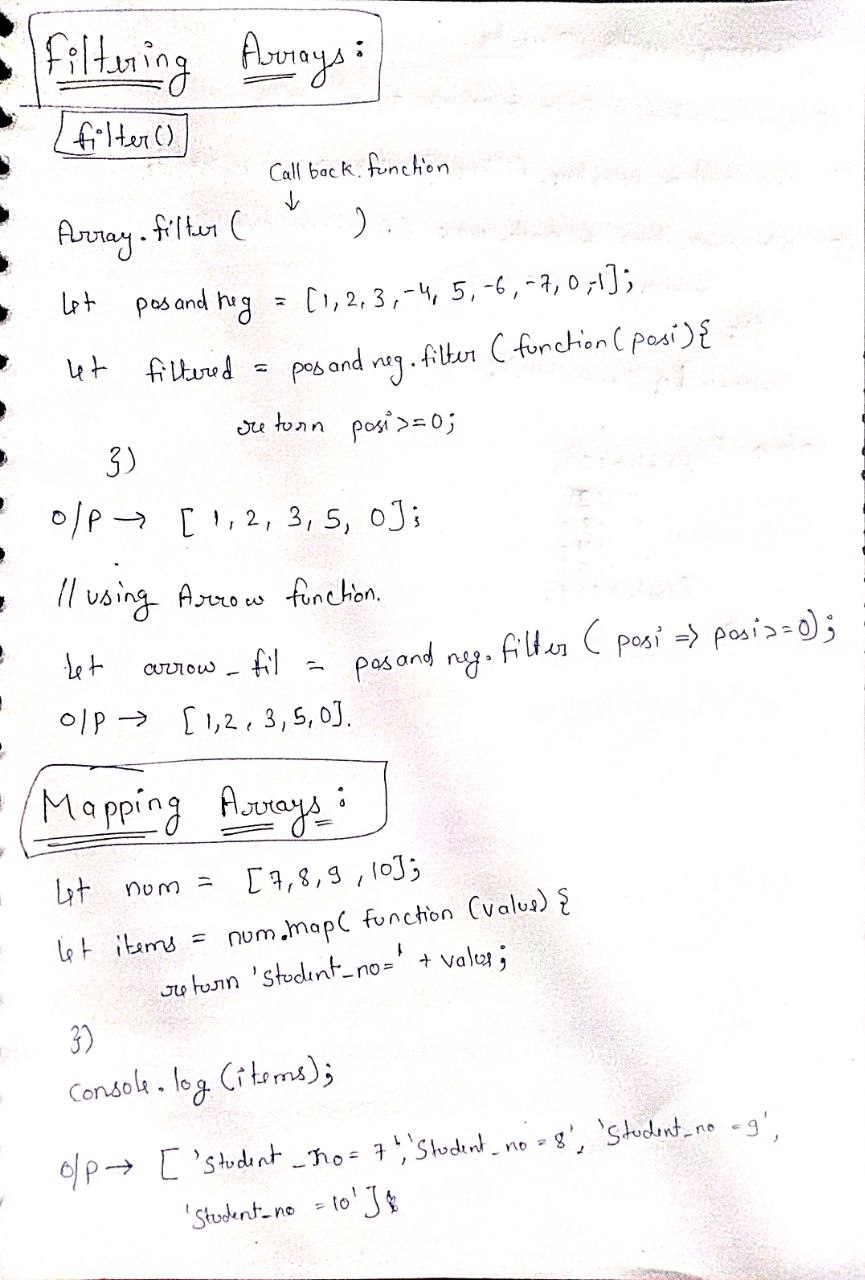 Filtering Arrays:
filter()
Call back function
↓
Array.filter( ).
let posandneg = [1, 2, 3, -4, 5, -6, -7, 0, -1];
let filtered = posandneg.filter (function(posi){
return posi>=0;
})
o/p → [ 1, 2, 3, 5, 0];
// using Arrow function.
let arrow_fil = posandneg.filter ( posi => posi>=0);
o/p → [1,2, 3,5,0].
Mapping Arrays:
let num = [7,8,9,10];
let items = num.map( function (value) {
return 'Student_no=' + value;
})
Console.log (items);
o/p → [ 'Student_no= 7', 'Student_no = 8', 'Student_no = 9',
'Student_no = 10' ]